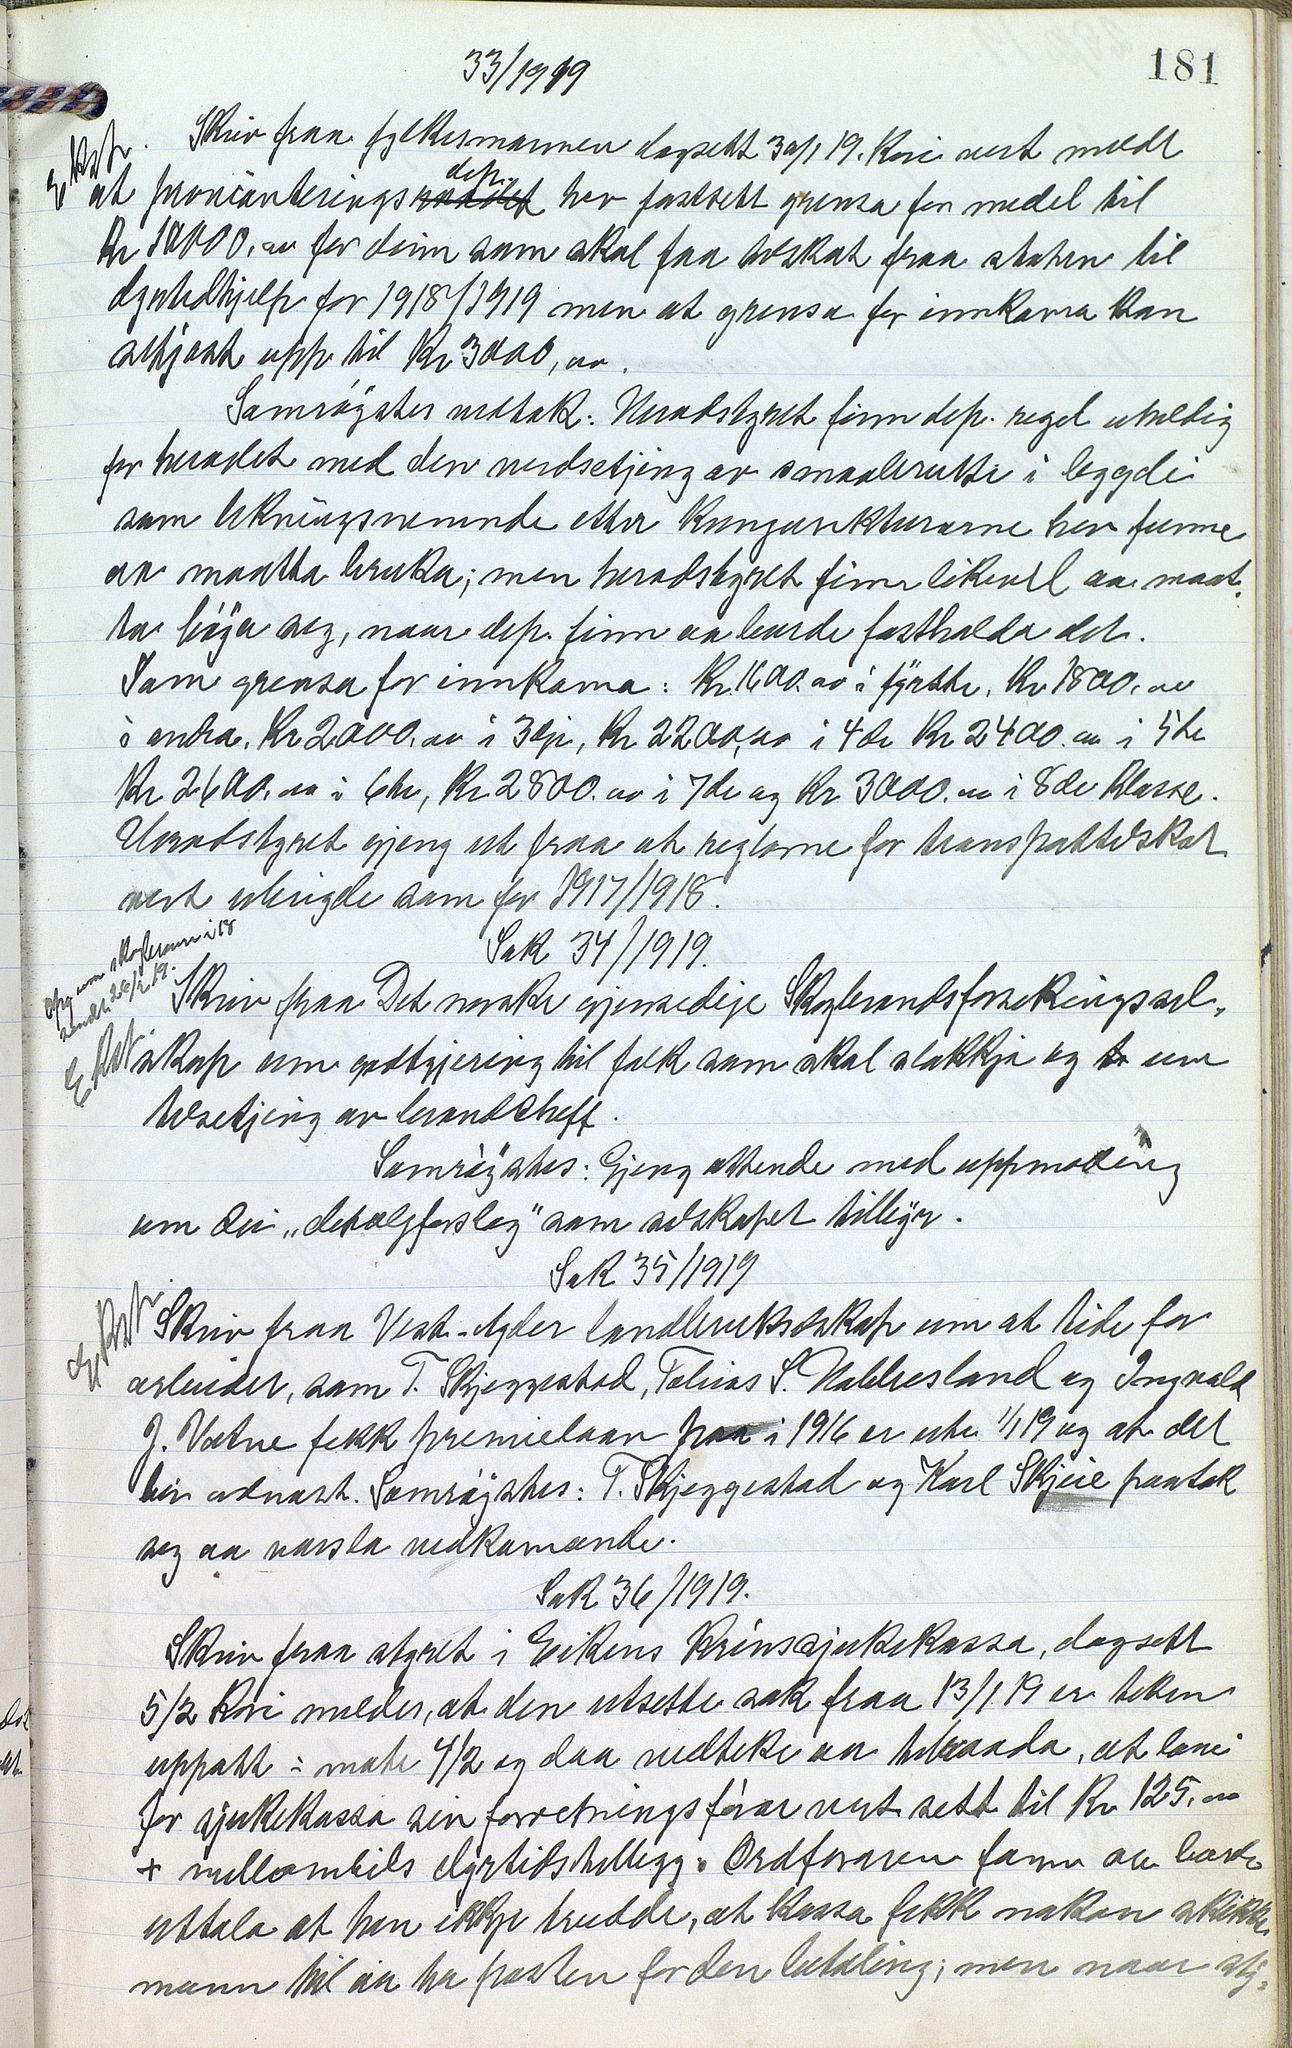 181
33/1919
Ekstr. Skriv fraa fylkesmannen dagsett 30/1 19. Kvi vert meldt
at provianteringsraadet dep. hev fastsett grensa for medel til
Kr 10000,00 for deim som skal faa tilskot fraa staten til
dyrtidhjelp for 1918/1919 men at grensa for innkoma kan
setjast upp til Kr 3000,00.
Samrøystes vedtak: Heradstyret finn dep. regel uheldig
for heradet med den verdsetjing av smaabruki i bygdi
som likningsnemnde etter Kunngjer hev funne
aa maatta bruka; men heradstyret finn likevel aa maat-
ta bøya seg, naar dep. finn aa burde fasthalda det.
Som grensa for innkoma: Kr. 1600.00 i fyrste, Kr 1800,00
i andra, Kr 2000,00 i 3dje, Kr 2200,00 i 4de Kr 2400.00 i 5te
Kr 2600,00 i 6te, Kr 2800.00 i 7de og Kr 3000.00 i 8de klasse.
Heradstyret gjeng ut fraa at reglarne for transporttilskot
vert ubrigde som for 1917/1918.
Sak 34/1919.
Utg um skogbrann i 18
sendt 20/2 19.
Ekstr. Skriv fraa Det norske gjensidige Skogbrandsforsikringssel-
skap um godtgjering til folk som skal sløkkja og um
tilsetjing av brandcheff.
Samrøystes: Gjeng attende med uppmoding
um dei "detaljforslag" som selskapet tilbyr.
Sak 35/1919
Ekstr. Skriv fraa Vest-Agder landbruksselskap um at tidi for
arbeider, som T. Skjeggestad, Tobias S. Nabbesland og Ingvald
J. Vatne fekk premielaan fraa i 1916 er ute 1/1 19 og at det
bir odnast. Samrøystes: T. Skjeggestad og Karl Skjeie paatok
seg aa varsla vedkomande.
Sak 36/1919.
Skriv fraa styret i Eikens Krinssjukekassa, dagsett
5/2 Kvi melder, at den utsette sak fraa 13/1 19 er teken
uppatt i møte 4/2 og daa vedteke aa tilraada, at løni
for sjukekassa sin forretningsførar vert sett til Kr 125,00
+ mellombils dyrtidstillegg. Ordføraren fann aa burde
uttala at han ikkje trudde, at kassa fekk nokon skikke
mann til aa ha posten for den betaling; men naar sty-